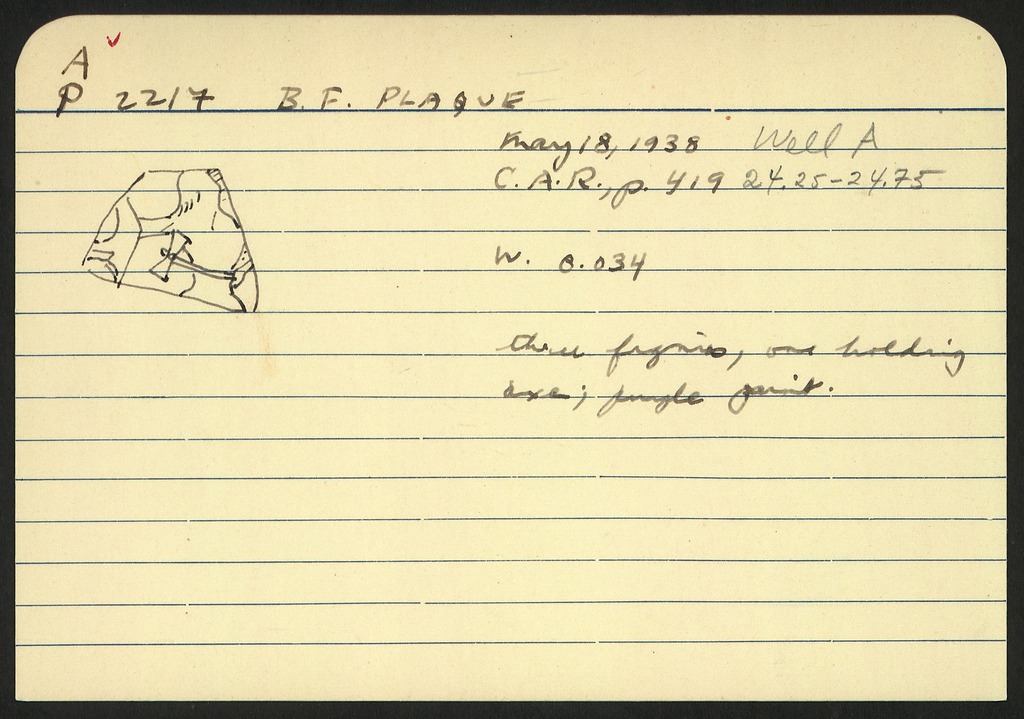 A
P 2217 B. F. PLAQUE
May 18, 1938 Well A
C. A. R., p. 419 24.25-24.75
W. 0.034
three figures, one holding
axe; purple paint.